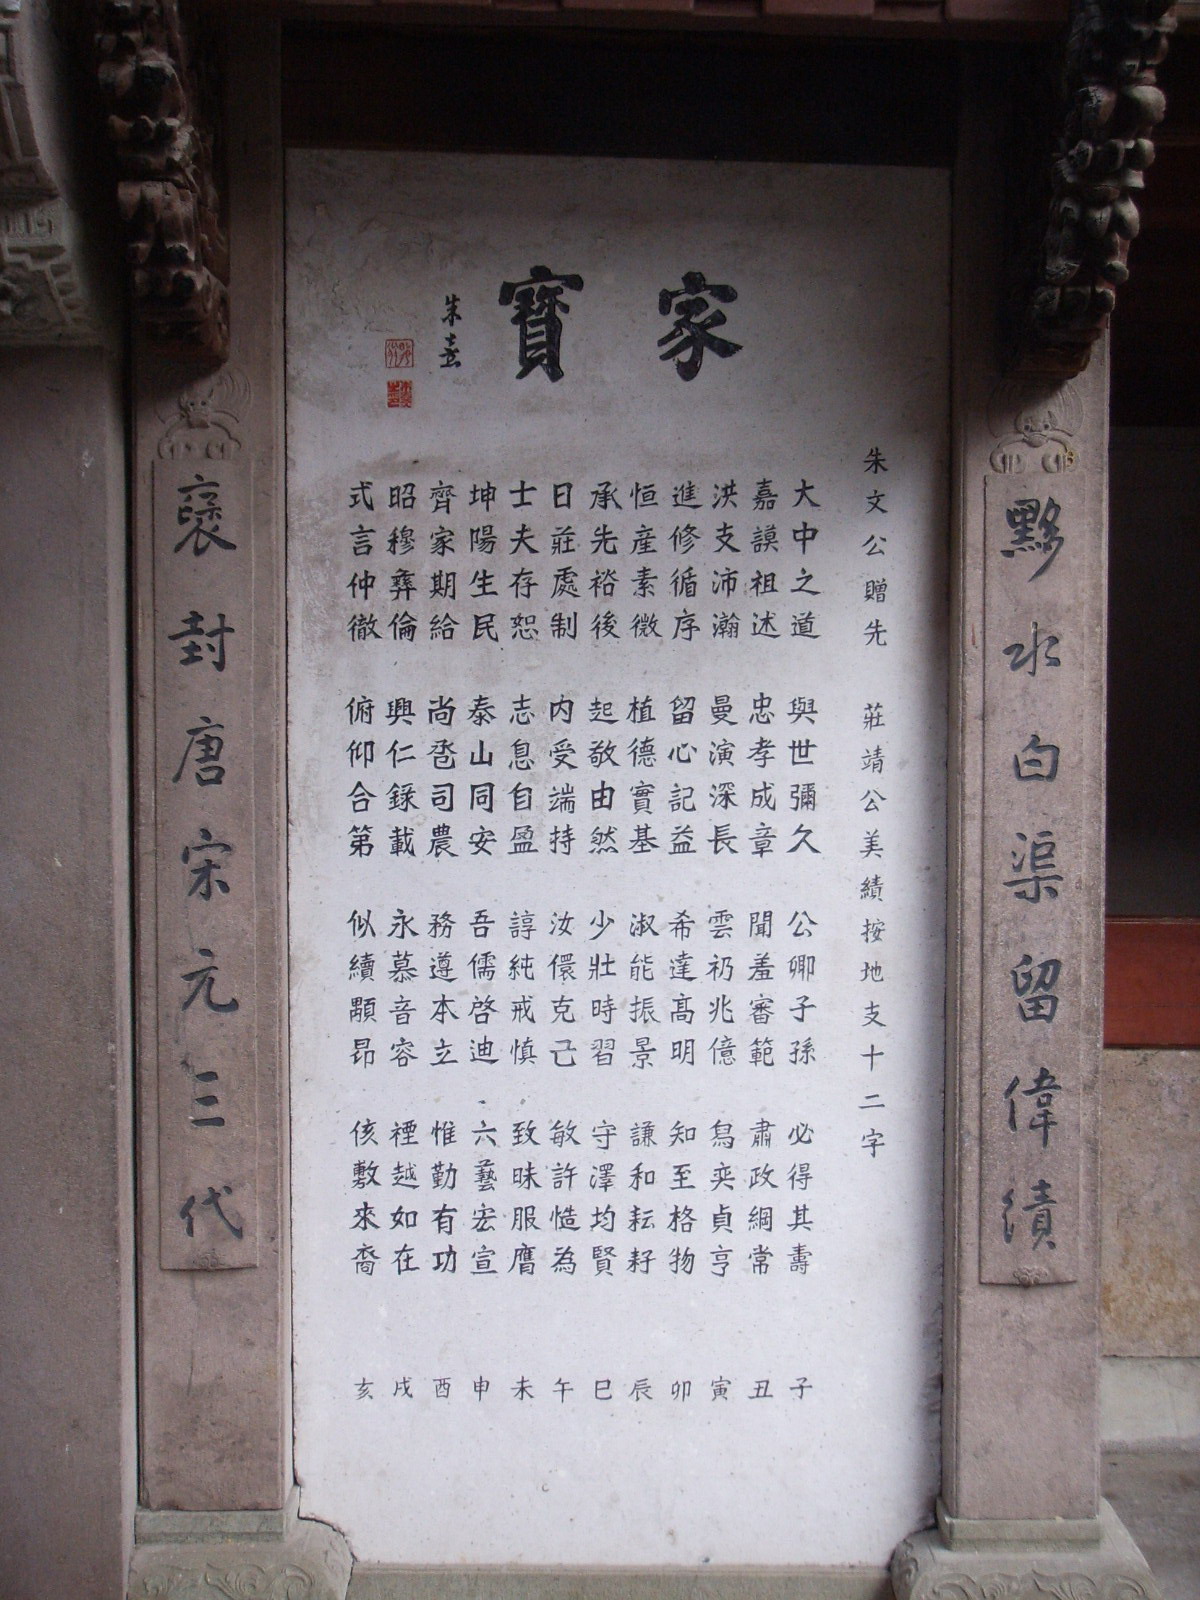 黟水白渠留偉績
家寶
朱熹
朱文公贈先 莊靖公美績按地支十二字
大中之道 與世彌久 公卿子孫 必得其壽 子
嘉謨祖述 忠孝成章 聞羞審範 肅政綱常 丑
洪支沛瀚 曼演深長 雲礽兆億 舄奕貞亨 寅
進修循序 留心記益 希達高明 知至格物 卯
恒産素微 植德實基 淑能振景 謙和耘耔 辰
承先裕後 起敬由然 少壯時習 守澤均賢 巳
日莊處制 内受端持 汝儇克己 敏許慥為 午
士夫存恕 志息自盈 諄純戒慎 致昧服膺 未
坤陽生民 泰山同安 吾儒啓迪 六藝宏宣 申
齊家期給 尚岙司農 務遵本立 惟勤有功 酉
昭穆彝倫 興仁錄載 永慕音容 禋越如在 戌
式言仲徹 俯仰合第 似續顒昂 侅敷來裔 亥
褒封唐宋元三代